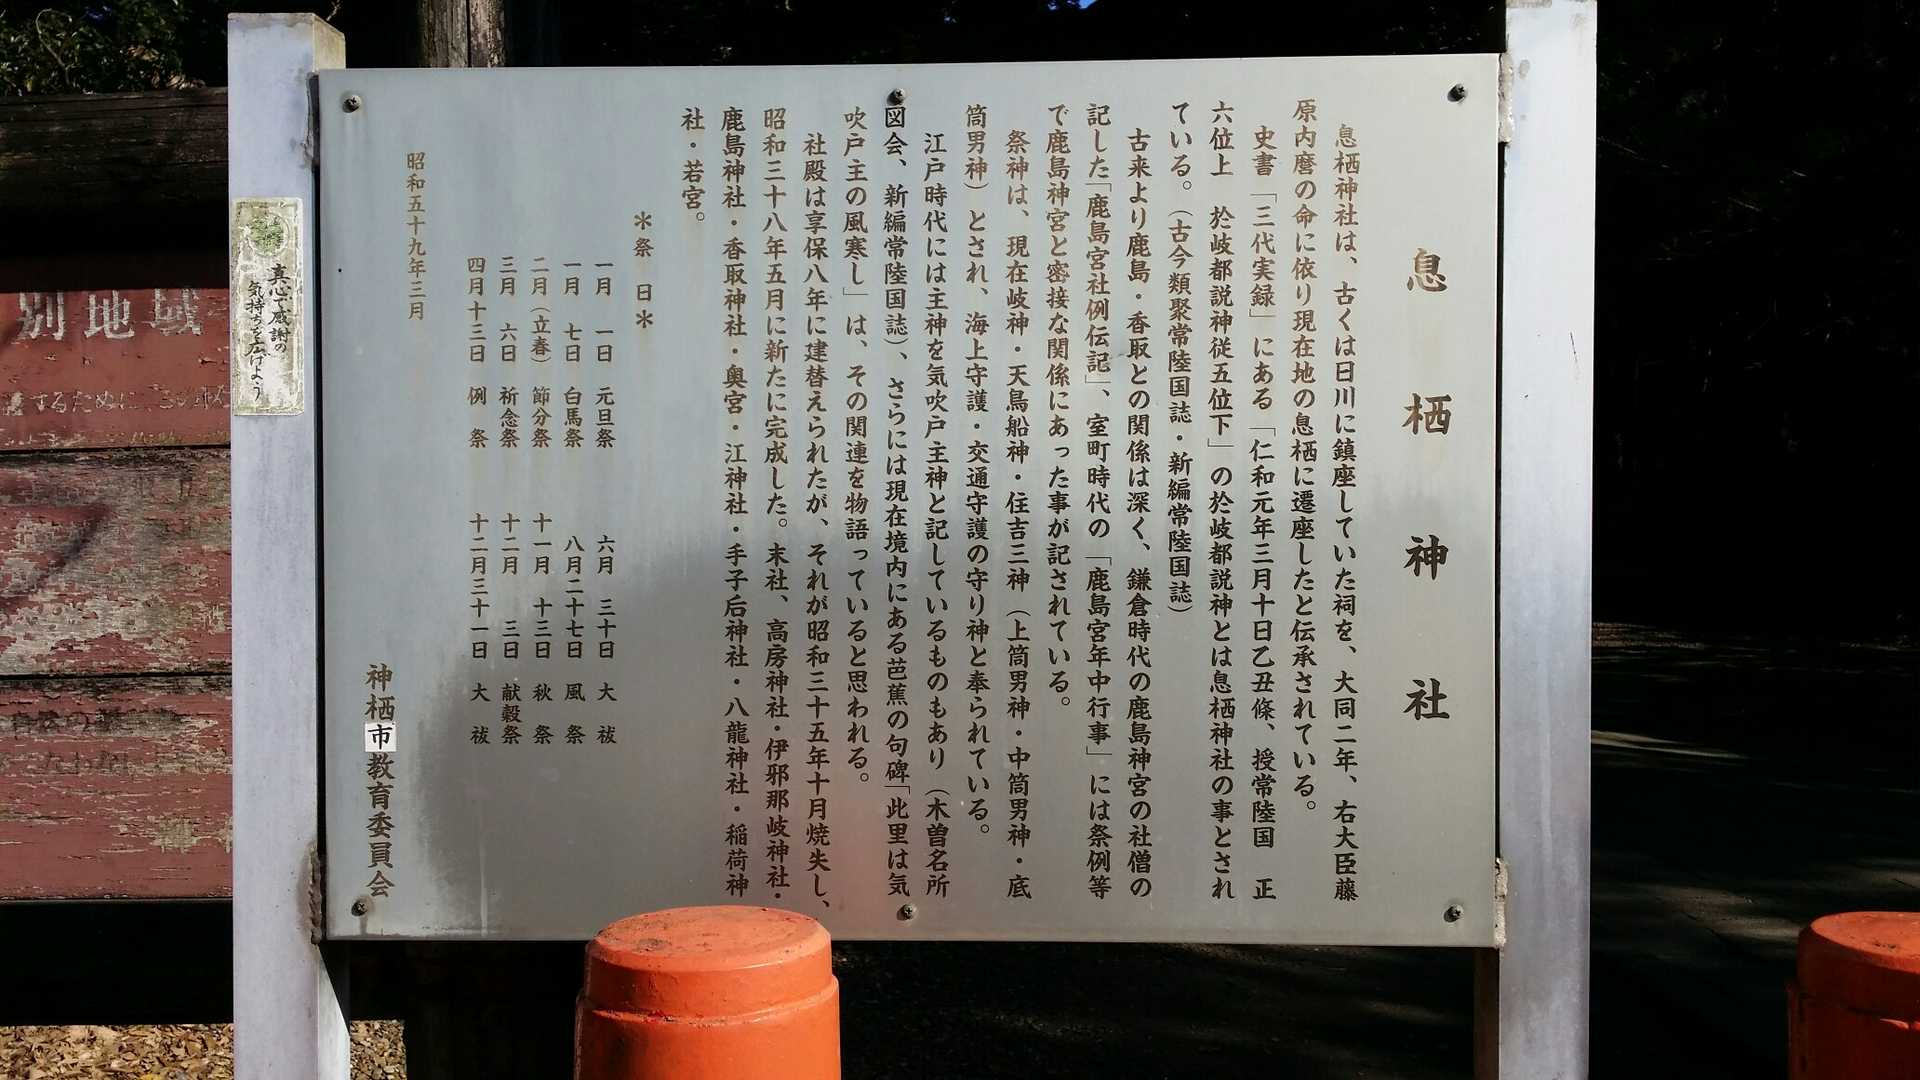 息栖神社
息栖神社は、古くは日川に鎮座していた祠を、大同二年、右大臣藤
原内麿の命に依り現在地の息栖に遷座したと伝承されている。
史書「三代実録」にある「仁和元年三月十日乙丑條、授常陸国　正
六位上　於岐都説神従五位下」の於岐都説神とは息栖神社の事とされ
ている。（古今類聚常陸国誌・新編常陸国誌）
古来より鹿島・香取との関係は深く、鎌倉時代の鹿島神宮の社僧の
記した「鹿島宮社例伝記」、室町時代の「鹿島宮年中行事」には祭例等
で鹿島神宮と密接な関係にあった事が記されている。
祭神は、現在岐神・天鳥船神・住吉三神（上筒男神・中筒男神・底
筒男神）とされ、海上守護・交通守護の守り神と奉られている。
江戸時代には主神を気吹戸主神と記しているものもあり（木曽名所
図会、新編常陸国誌）、さらには現在境内にある芭蕉の句碑「此里は気
吹戸主の風寒し」は、その関連を物語っていると思われる。
社殿は享保八年に建替えられたが、それが昭和三十五年十月焼失し、
昭和三十八年五月に新たに完成した。末社、高房神社・伊邪那岐神社・
鹿島神社・香取神社・奥宮・江神社・手子后神社・八龍神社・稲荷神
社・若宮。
＊祭　日＊
一月　一日　元旦祭　六月　三十日　大　祓
一月　七日　白馬祭　八月二十七日　風　祭
二月（立春）　節分祭　十一月　十三日　秋　祭
三月　六日　祈念祭　十二月　三日　献穀祭
四月十三日　例　祭　十二月三十一日　大　祓
昭和五十九年三月
神栖市教育委員会
真心で感謝の
気持ちを広げよう
別地域
するために